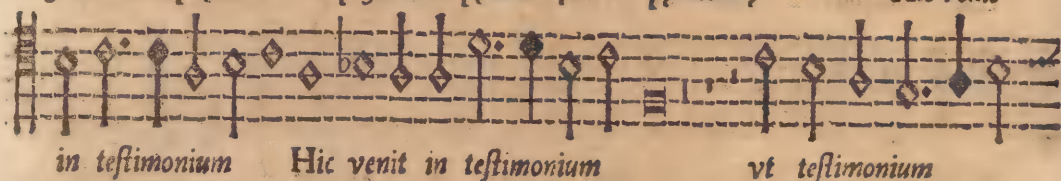 in testimonium Hic venit in testimonium vt testimonium